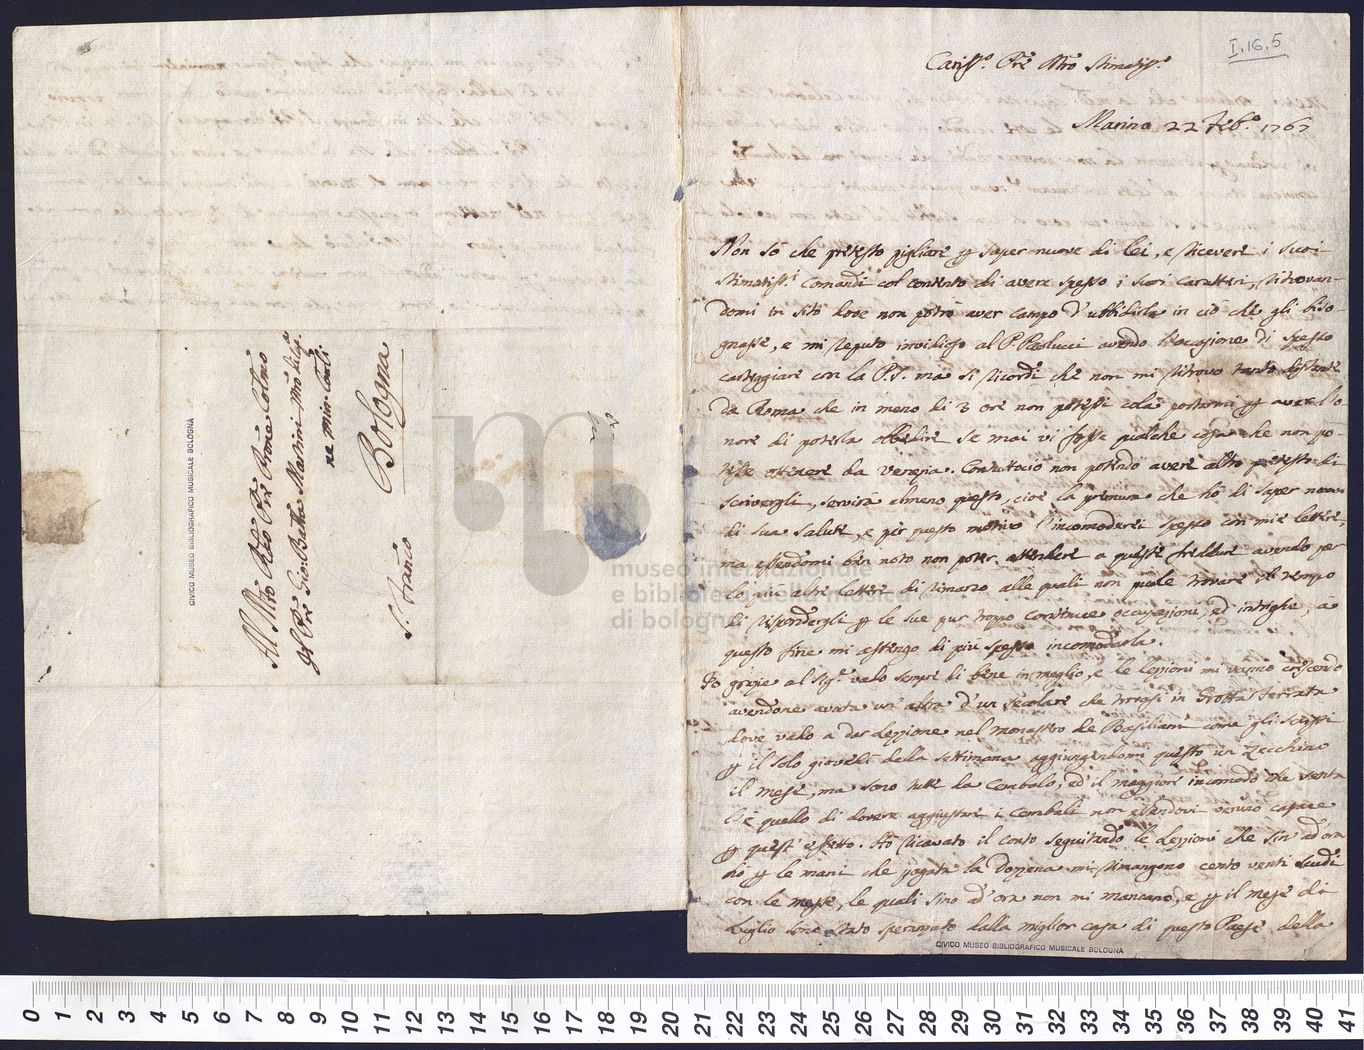 I.16.5
Cariss.º Pre Mro Stimatiss.º
Marino 22 Feb.º 1767
Non sò che pretesto pigliare p saper nuove di lei, e ricevere i suoi
stimatiss.i Comandi col contento di avere spesso i suoi Caratteri, ritrovan-
domi in sito dove non potrò aver campo d'ubbidirla in ciò che gli biso-
gnasse, e mi reputo invidioso al P. Paolucci avendo l'occasione di spesso
carteggiare con la P.S. ma si ricordi che non mi ritrovo tanto distante
da Roma che in meno di 3 ore non potessi colà portarmi p aver l'o
nore di poterla obbedire se mai vi fosse qualche cosa che non po-
tesse ottenere da Venezia. Contuttociò non potendo avere altro pretesto di
scrivergli, servirà almeno questo, cioè la premura che hò di saper nuove
di sua salute, e pèr questo motivo l'incomoderei spesso con mie lettere,
ma essendomi bèn noto non poter attendere a queste freddure avendo per
lo più altre lettere di rimarco alle quali non puole trovare il tempo
di rispondergli p le sue pur troppo continue occupazioni, ed intrighi, a
questo fine mi astengo di più spesso incomodarla.
Io grazie al Sig.re vado sempre di bene in meglio, e le lezzioni mi vanno crescendo
avendone avuta un'altra d'un secolare che trovasi in Grotta Ferrata
dove vado a dar Lezzione nel monastro de Basiliani come gli scrissi
p il solo giovedì della settimana aggiungendomi questo un Zecchino
il mese, ma sono tutte da Cembalo, ed il maggiore incomodo che senta
l'è quello di dovere aggiustare i Cembali non essendovi veruno capace
p quest'effetto. Ho ricavato il conto seguitando le Lezzioni che sin ad'ora
hò p le mani che pagata la dozzena mi rimangono cento venti scudi
con le messe, le quali sino ad'ora non mi mancano, e p il mese di
Luglio sono stato sperimato dalla miglior casa di questo Paese della
CIVICO MUSEO BIBLIOGRAFICO MUSICALE BOLOGNA
Al Mto Rdo Pre Prone Colmo
Il Pre Gio: Batta Martini Mro di Cap.
ne Min: Conli
Bologna
S. Franco
CIVICO MUSEO BIBLIOGRAFICO MUSICALE BOLOGNA
museo internazionale
e biblioteca della musica
di bologna
0 1 2 3 4 5 6 7 8 9 10 11 12 13 14 15 16 17 18 19 20 21 22 23 24 25 26 27 28 29 30 31 32 33 34 35 36 37 38 39 40 41